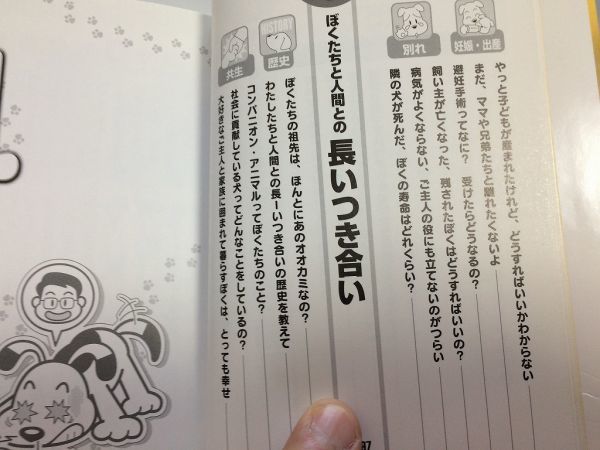 妊娠・出産
やっと子どもが産まれたけれど、どうすればいいかわからない
まだ、ママや兄弟たちと離れたくないよ
避妊手術ってなに? 受けたらどうなるの?
別れ
飼い主が亡くなった、残されたぼくはどうすればいいの?
病気がよくならない、ご主人の役にも立てないのがつらい
隣の犬が死んだ、ぼくの寿命はどれくらい?
ぼくたちと人間との長いつき合い
HISTORY
歴史
ぼくたちの祖先は、ほんとにあのオオカミなの?
わたしたちと人間との長ーいつき合いの歴史を教えて
共生
コンパニオン・アニマルってぼくたちのこと?
社会に貢献している犬ってどんなことをしているの?
大好きなご主人と家族に囲まれて暮らすぼくは、とっても幸せ